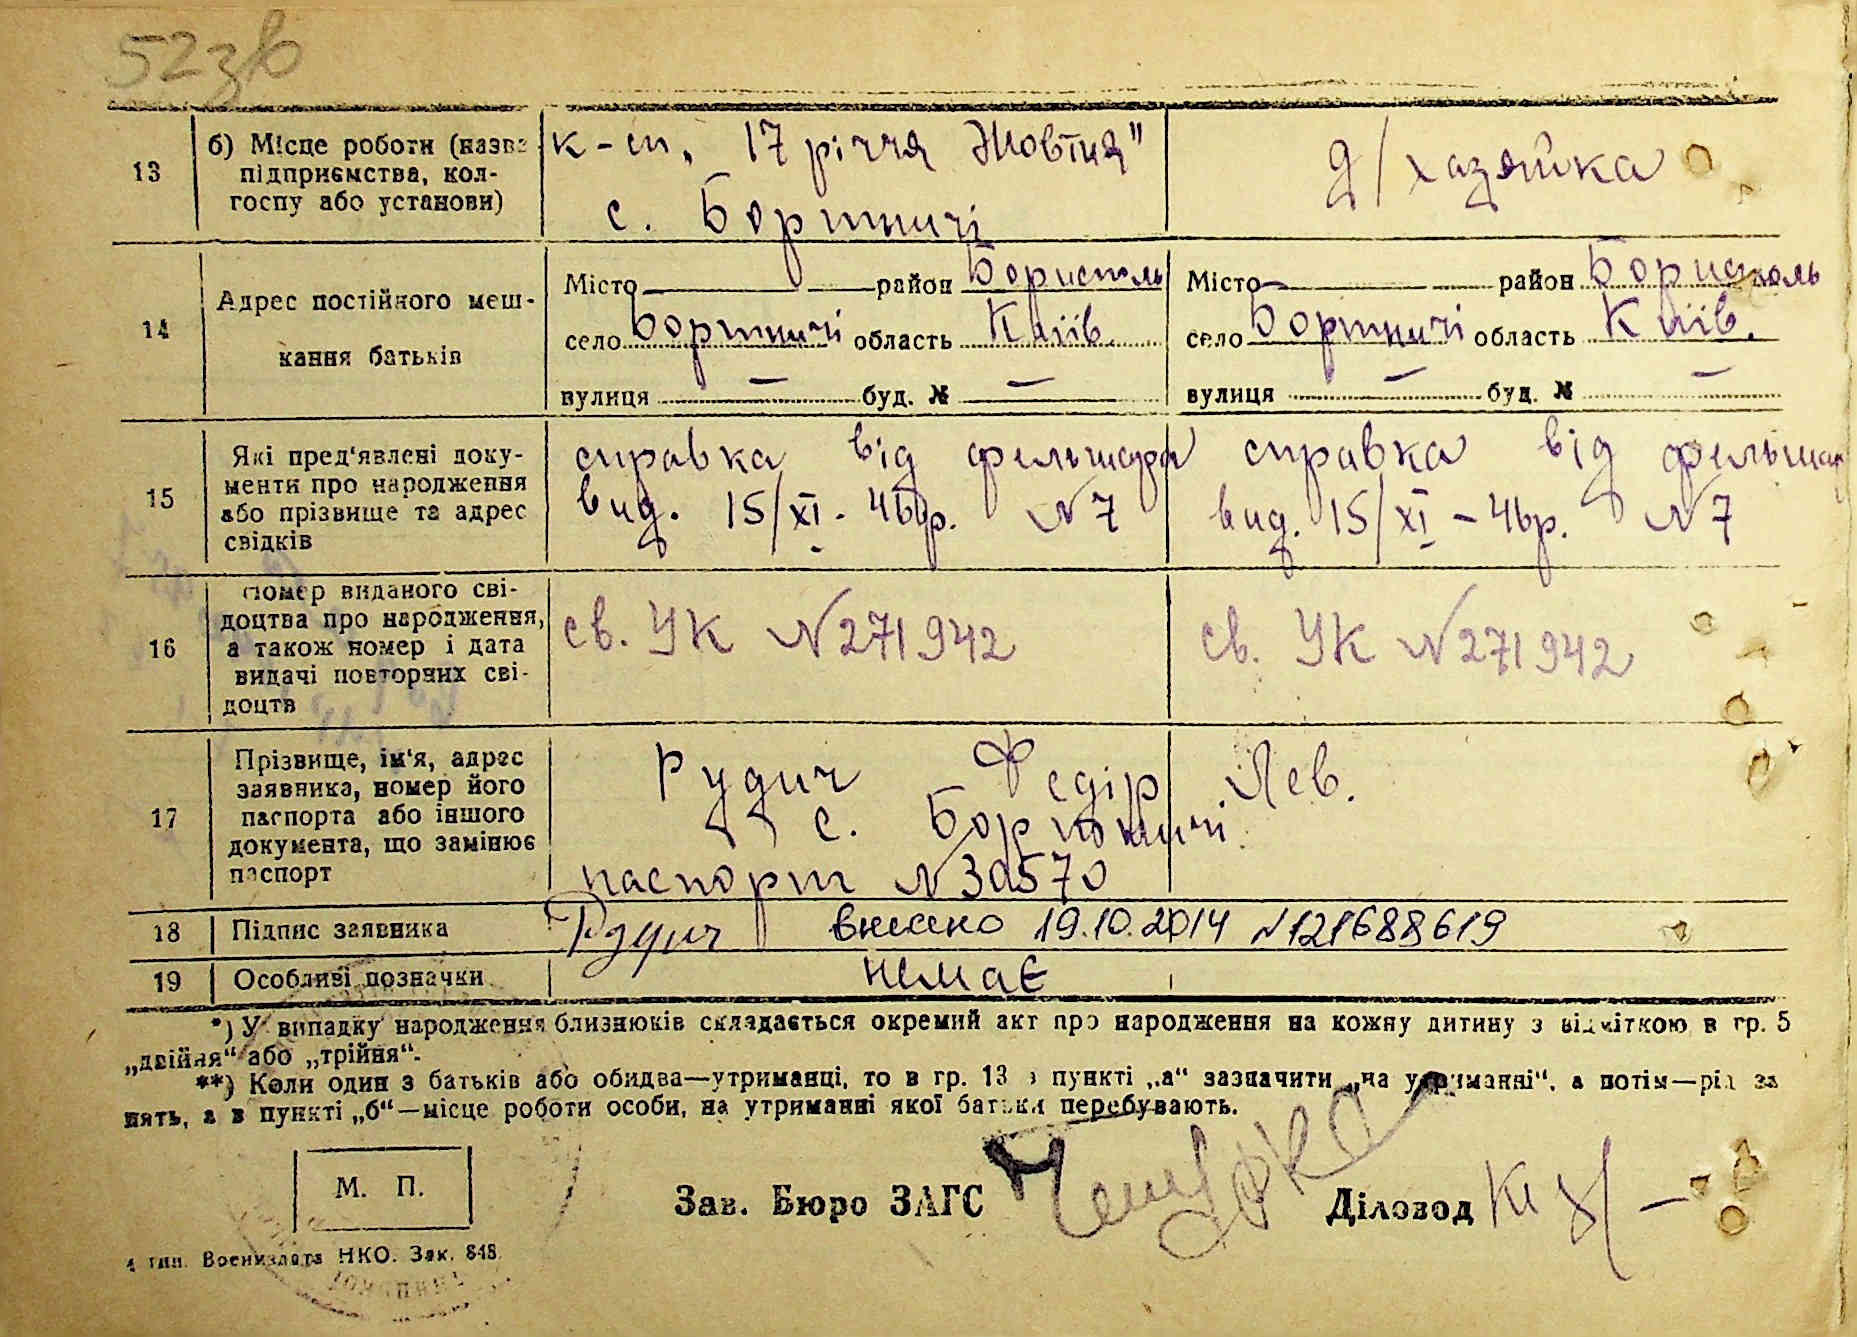 523в
13
б) Місце роботи (назва підприємства, колгоспу або установи)
к-сп. "17 річчя Жовтня"
с. Бортничі
д/хазяйка
14
Адрес постійного мешкання батьків
Місто район Бориспіль
село Бортничі область Київ.
вулиця — буд. № —
Місто район Бориспіль
село Бортничі область Київ.
вулиця — буд. № —
15
Які пред'явлені документи про народження або прізвище та адрес свідків
справка від фельшера
вид. 15/XI - 46р. N 7
справка від фельшера
вид. 15/XI - 46р. N 7
16
Номер виданого свідоцтва про народження, а також номер і дата видачі повторних свідоцтв
св. УК N 271942
св. УК N 271942
17
Прізвище, ім'я, адрес заявника, номер його паспорта або іншого документа, що замінює паспорт
Рудич Федір Лев.
с. Бортничі
паспорт N 30570
18
Підпис заявника
Рудич внесено 19.10.2014 N121688619
19
Особливі позначки
немає
*) У випадку народження близнюків складається окремий акт про народження на кожну дитину з відміткою в гр. 5
„двійня“ або „трійня“.
**) Коли один з батьків або обидва—утриманці, то в гр. 13 в пункті „а“ зазначити „на утриманні“, а потім—рід за
нять, а в пункті „б“—місце роботи особи, на утриманні якої батьки перебувають.
М. П.
Зав. Бюро ЗАГС
Діловод
4 тип. Воениздата НКО. Зак. 848.